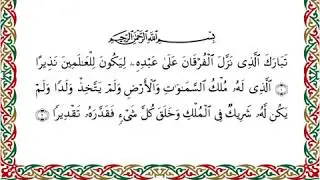 بِسْمِ ٱللَّهِ ٱلرَّحْمَٰنِ ٱلرَّحِيمِ
تَبَارَكَ ٱلَّذِى نَزَّلَ ٱلْفُرْقَانَ عَلَىٰ عَبْدِهِۦ لِيَكُونَ لِلْعَٰلَمِينَ نَذِيرًا
١ ٱلَّذِى لَهُۥ مُلْكُ ٱلسَّمَٰوَٰتِ وَٱلْأَرْضِ وَلَمْ يَتَّخِذْ وَلَدًا وَلَمْ
يَكُن لَّهُۥ شَرِيكٌ فِى ٱلْمُلْكِ وَخَلَقَ كُلَّ شَىْءٍ فَقَدَّرَهُۥ تَقْدِيرًا ٢